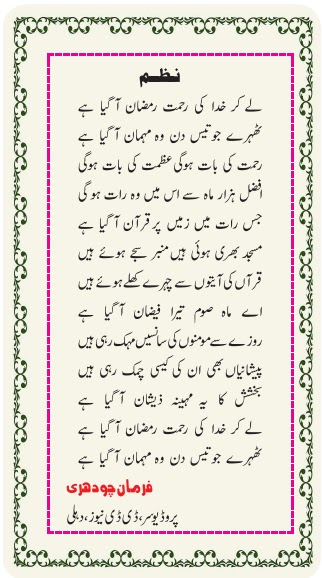 نظم
لے کر خدا کی رحمت رمضان آ گیا ہے
ٹھہرے جو تیس دن وہ مہمان آ گیا ہے
رحمت کی بات ہوگی عظمت کی بات ہوگی
افضل ہزار ماہ سے اس میں وہ رات ہوگی
جس رات میں زمیں پر قرآن آ گیا ہے
مسجد بھری ہوئی ہیں منبر سجے ہوئے ہیں
قرآں کی آیتوں سے چہرے کھلے ہوئے ہیں
اے ماہ صوم تیرا فیضان آ گیا ہے
روزے سے مومنوں کی سانسیں مہک رہی ہیں
پیشانیاں بھی ان کی کیسی چمک رہی ہیں
بخشش کا یہ مہینہ ذیشان آ گیا ہے
لے کر خدا کی رحمت رمضان آ گیا ہے
ٹھہرے جو تیس دن وہ مہمان آ گیا ہے
فرمان چودھری
پروڈیوسر، ڈی ڈی نیوز، دہلی